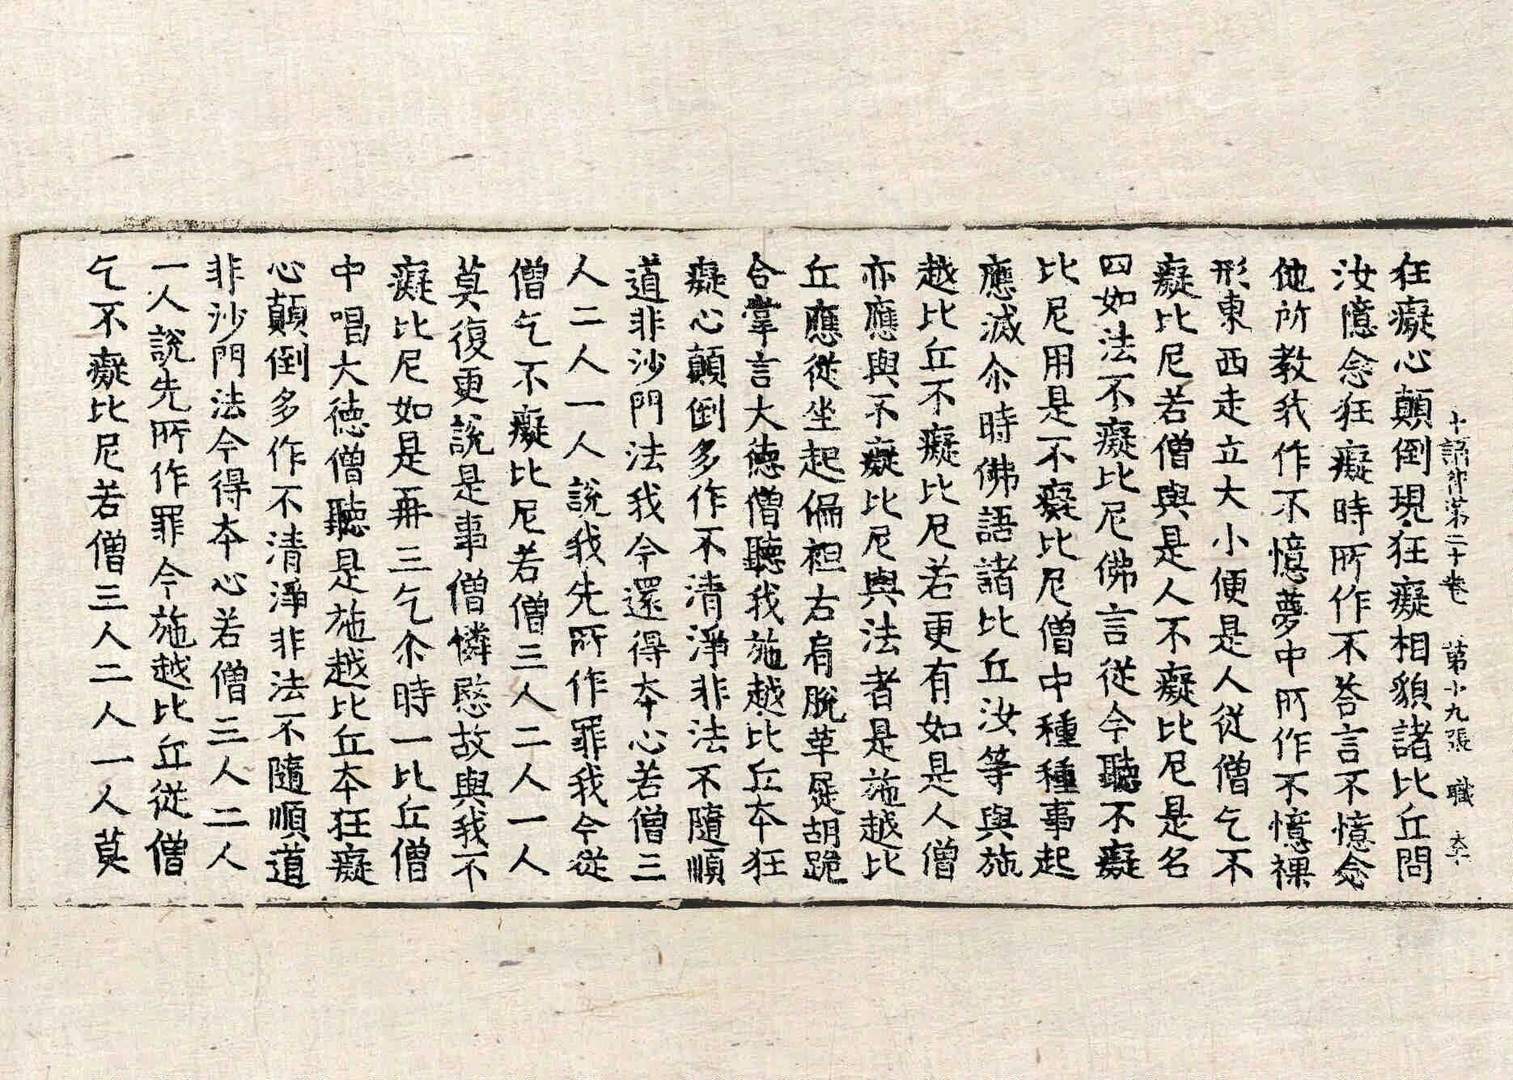 十誦律第二十卷　第十九張　職
狂癡心顛倒現狂癡相貌諸比丘問
汝憶念狂癡時所作不荅言不憶念
他所教我作不憶夢中所作不憶裸
形東西走立大小便是人從僧乞不
癡比尼若僧與是人不癡比尼是名
四如法不癡比尼佛言從今聽不癡
比尼用是不癡比尼僧中種種事起
應滅尒時佛語諸比丘汝等與施
越比丘不癡比尼若更有如是人僧
亦應與不癡比尼與法者是施越比
丘應從坐起偏袒右肩脫革屣胡跪
合掌言大德僧聽我施越比丘本狂
癡心顛倒多作不清淨非法不隨順
道非沙門法我今還得本心若僧三
人二人一人說我先所作罪我今從
僧乞不癡比尼若僧三人二人一人
莫復更說是事僧憐愍故與我不
癡比尼如是再三乞尒時一比丘僧
中唱大德僧聽是施越比丘本狂癡
心顛倒多作不清淨非法不隨順道
非沙門法今得本心若僧三人二人
一人說先所作罪今施越比丘從僧
乞不癡比尼若僧三人二人一人莫